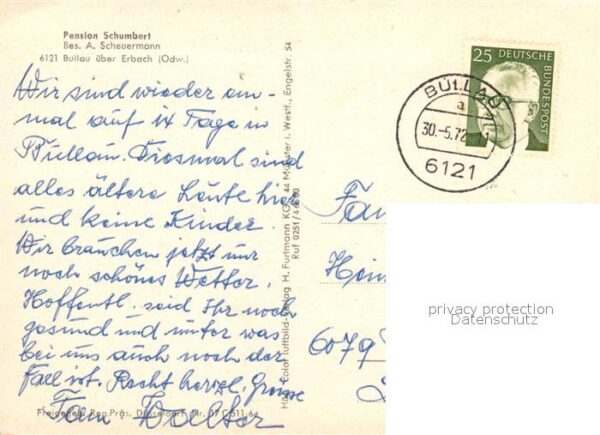 Pension Schumbert
Bes. A. Scheuermann
6121 Bullau über Erbach (Odw.)
Wir sind wieder ein-
mal auf 14 Tage in
Bullau. Diesmal sind
alles ältere Leute hier
und keine Kinder.
Wir brauchen jetzt nur
noch schönes Wetter.
Hoffentl. seid Ihr noch
gesund und unter was
bei uns auch noch der
Fall ist. Recht herzl. Grüsse
Fam
Freigegeben Reg. Präs. Düsseldorf Nr.
Color luftbild-Verlag H. Furtmann KG, 44 Münster i. Westf., Engelstr. 54
Ruf 0251/
25 DEUTSCHE
BUNDESPOST
BULLAU
a
30.-5.72
6121
Fam
Hein
6079
privacy protection
Datenschutz